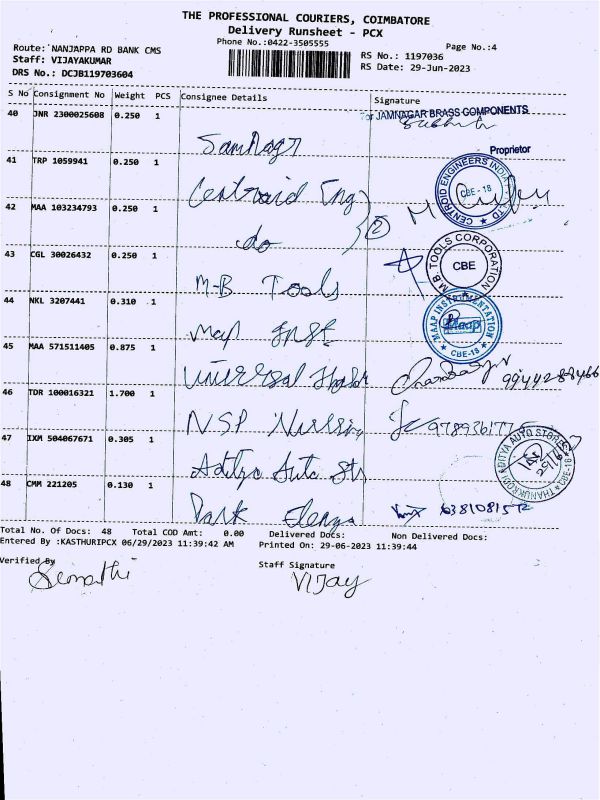 THE PROFESSIONAL COURIERS, COIMBATORE
Delivery Runsheet - PCX
Phone No.:0422-3505555
Page No.:4
Route: NANJAPPA RD BANK CMS
Staff: VIJAYAKUMAR
DRS No.: DCJB119703604
RS No.: 1197036
RS Date: 29-Jun-2023
S No Consignment No Weight PCS Consignee Details Signature
40 JNR 2300025608 0.250 1
For JAMNAGAR BRASS COMPONENTS
Proprietor
41 TRP 1059941 0.250 1
Centroid Eng
CENTROID ENGINEERS INDIA LTD
CBE - 18
42 MAA 103234793 0.250 1
do
2
43 CGL 30026432 0.250 1
M-B Tools
M.B TOOLS CORPORATION
CBE
44 NKL 3207441 0.310 1
Map Inst
MAAP INSTRUMENTATION
Maap
CBE-18
45 MAA 571511405 0.875 1
Universal
9944288466
46 TDR 100016321 1.700 1
NSP
47 IXM 504067671 0.305 1
Aditya Auto Str
ADITYA AUTO STORES
CBE-18
48 CMM 221205 0.130 1
Park
Total No. Of Docs: 48 Total COD Amt: 0.00 Delivered Docs: Non Delivered Docs:
Entered By :KASTHURIPCX 06/29/2023 11:39:42 AM Printed On: 29-06-2023 11:39:44
Verified By
Staff Signature
Vijay